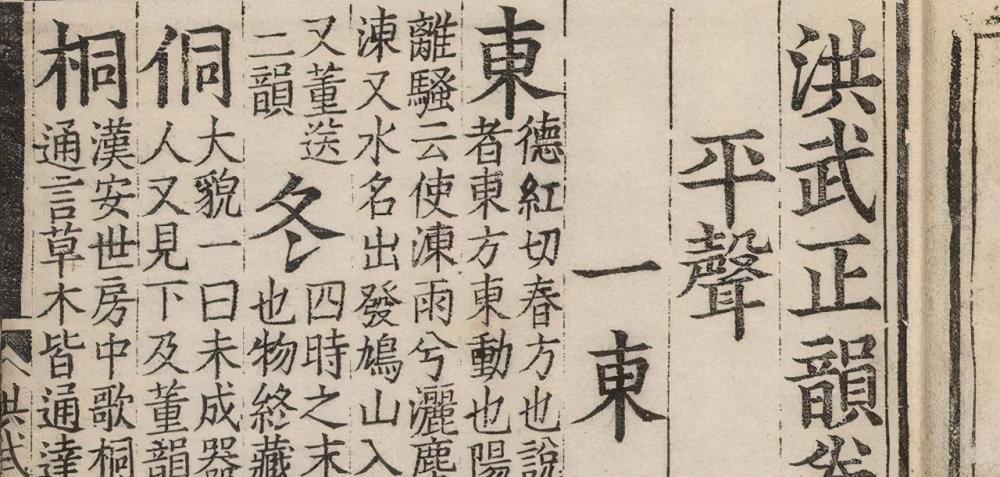 洪武正韻卷
平聲
一東
東
德紅切春方也說
者東方東動也陽
離騷云使涷雨兮灑塵
涷又水名出發鳩山入
又董送
二韻
冬
四時之末
也物終藏
侗
大貌一曰未成器
人又見下及董韻
桐
漢安世房中歌桐
通言草木皆通達
洪武